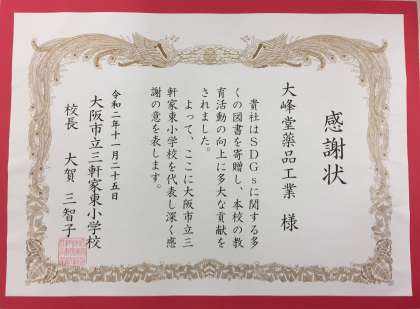 感謝状
大峰堂薬品工業 様
貴社はSDGsに関する多
くの図書を寄贈し、本校の教
育活動の向上に多大な貢献を
されました。
よって、ここに大阪市立三
軒家東小学校を代表し深く感
謝の意を表します。
令和二年十一月二十五日
大阪市立三軒家東小学校
校長 大賀 三智子